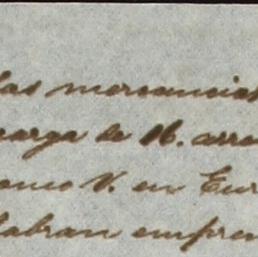 las mercancias
carga de 16. arro
como V. en Eur
habran empren